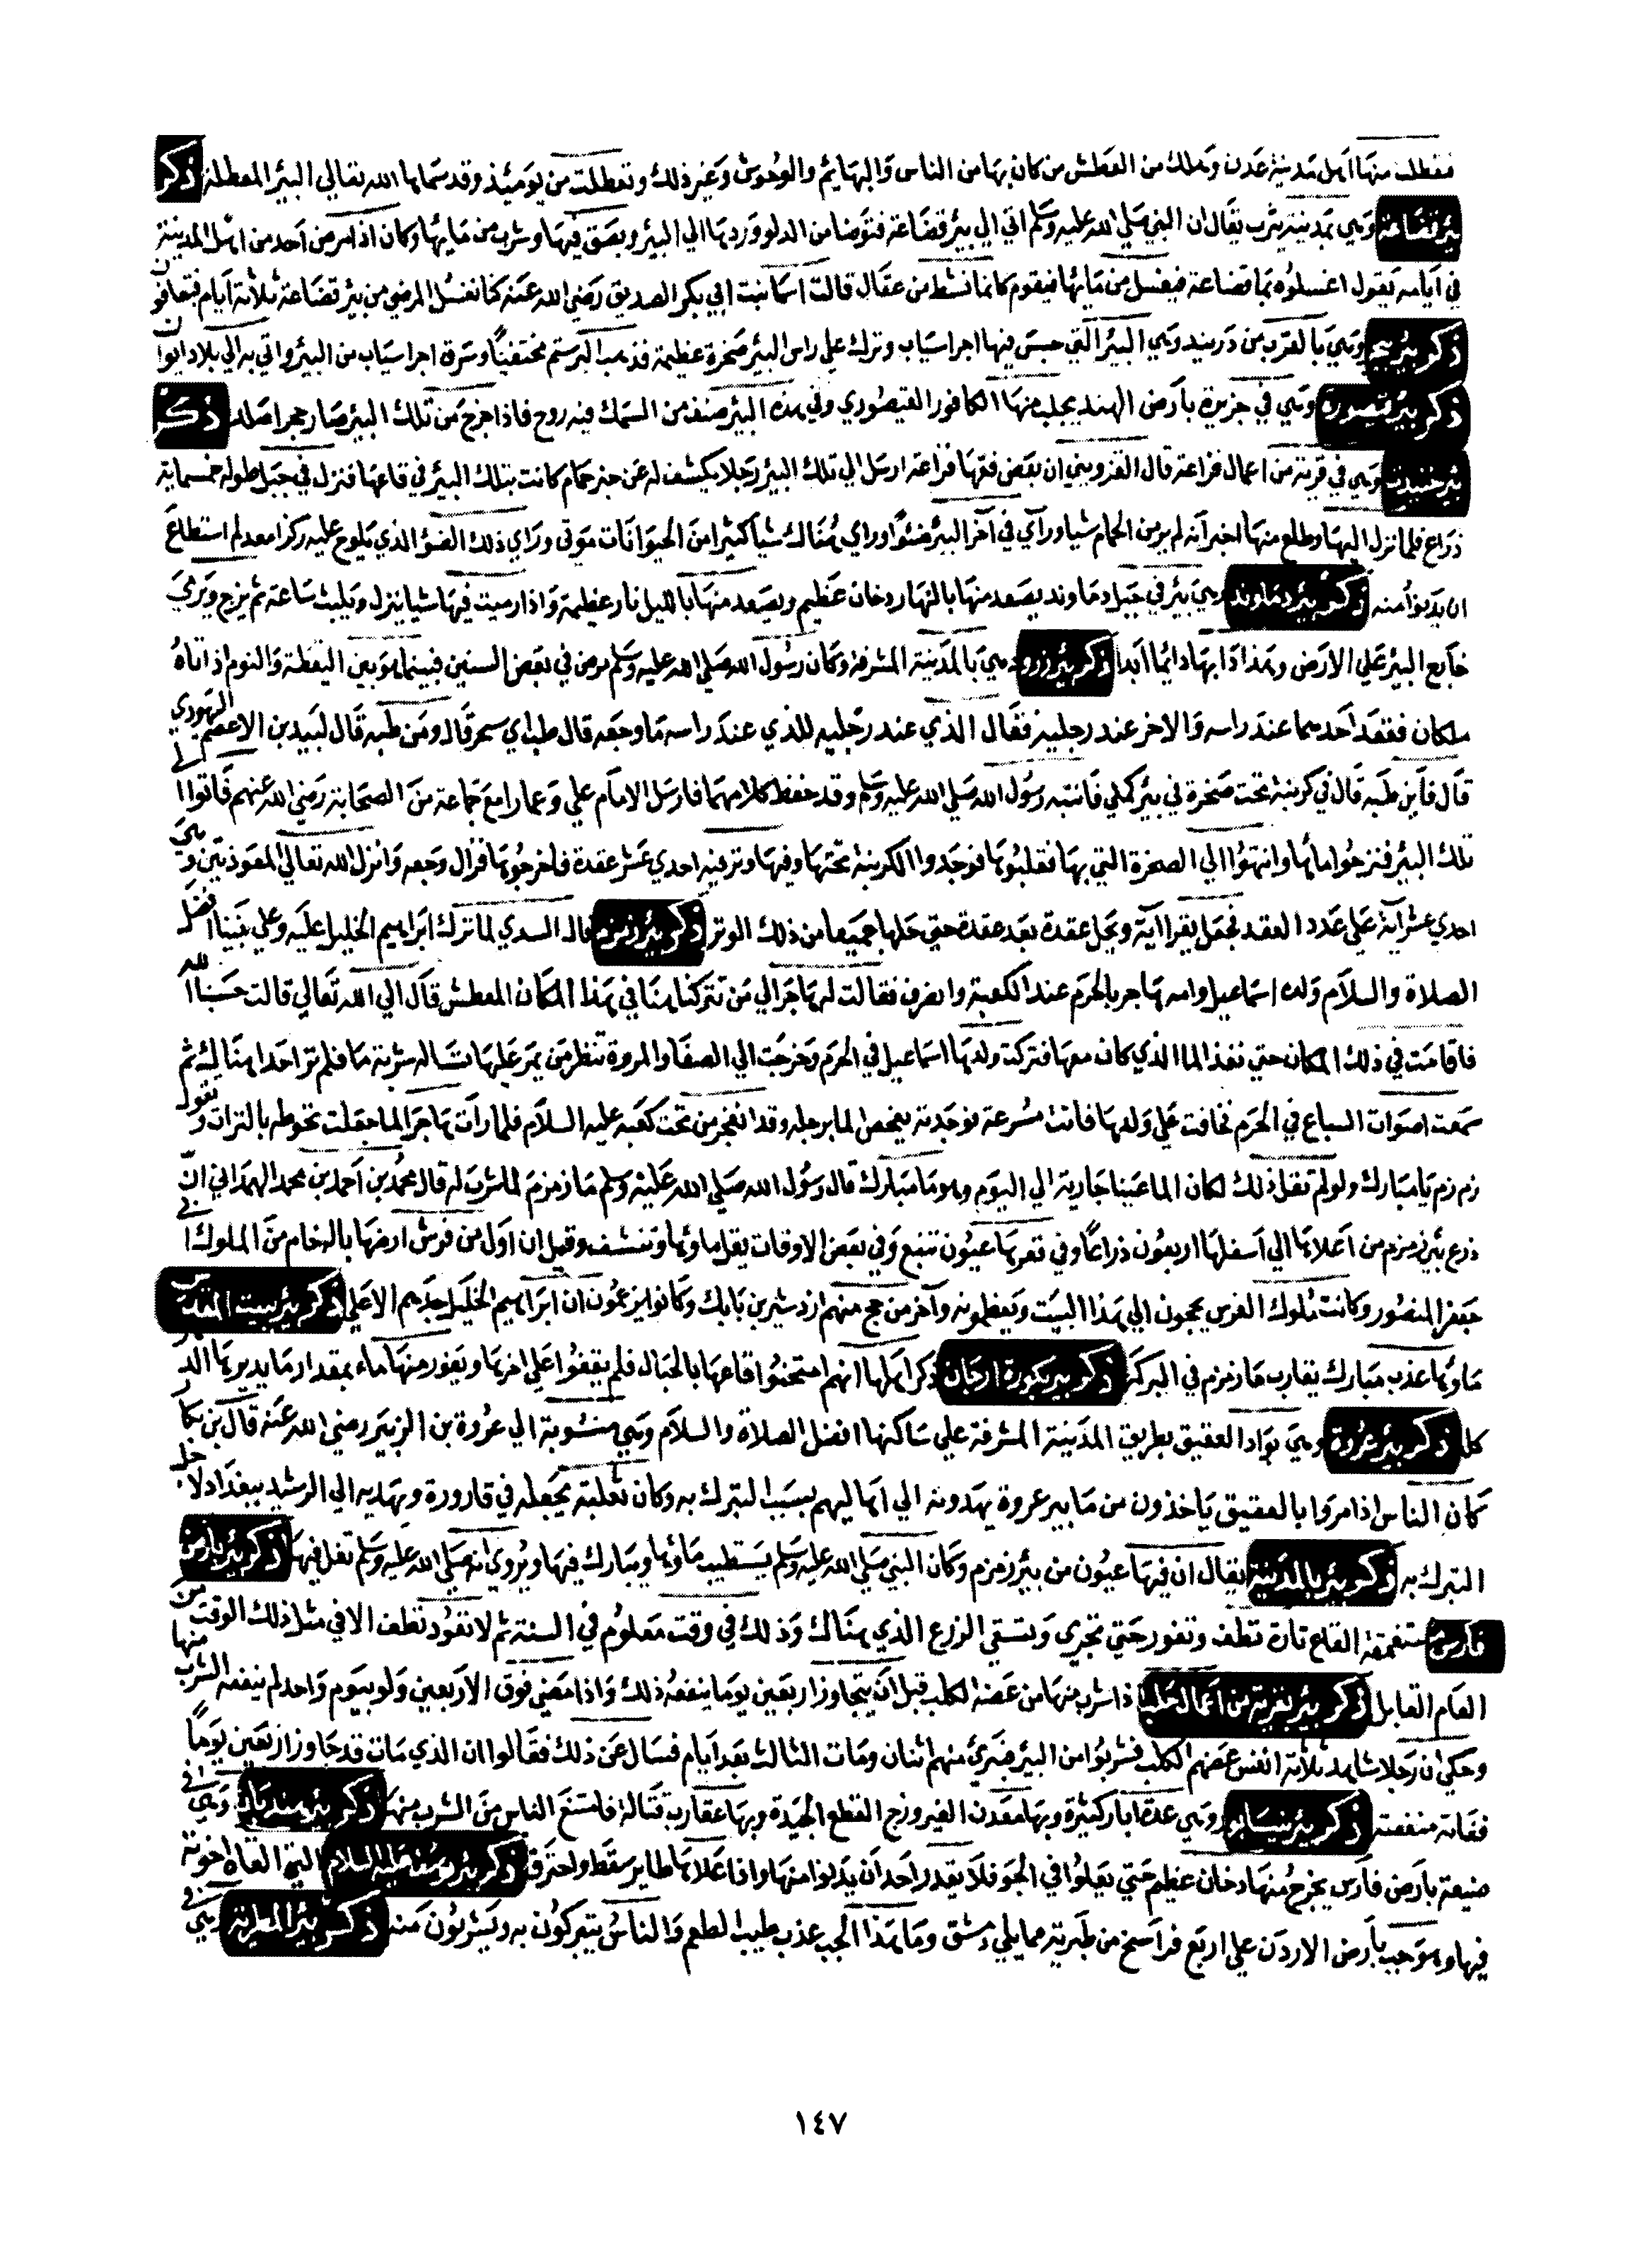 فعطلت منها اهل مدينة عدن وهلك من العطش من كان بها من الناس والبهايم والوحوش وغير ذلك وتعطلت من يومئذ وقد سماها الله تعالي البير المعطلة ذكر
بئر قضاعة وهي بمدينة يثرب يقال ان النبي صلي الله عليه وسلم اتي الي بير قضاعة فتوضا من الدلو وردها الي البئر وبصق فيها وشرب من مايها وكان اذا مرض احد من اهل المدينة
في ايامه يقول اغسلوه بما قضاعة فيغسل من مايها فيقوم كانما نشط من عقال قالت اسما بنت ابي بكر الصديق رضي الله عنه كنا نغسل المرضي من بئر قضاعة ثلاثة ايام فيتعافون
ذكر بئر وهي بالقرب من دربند وهي البئر التي حبس فيها اجراسياب وترك علي راس البئر صخرة عظيمة فذهب البرستم مختفيا وسرق اجراسياب من البئر واتي به الي بلاد ايران
ذكر بئر قيصورة وهي في جزيرة بارض الهند يجلب منها الكافور القيصوري وفي هذه البئر صنف من السمك فيه روح فاذا خرج من تلك البئر صار حجرا صلدا ذكر
بئر وهي في قرية من اعمال فراعة قال القزويني ان بعض فقها فراعة ارسل الي تلك البئر رجلا يكشف له عن خبر حمام كانت بتلك البئر في قاعها فنزل في حبل طوله خمسماية
ذراع فلما نزل اليها وطلع منها اخبر انه لم ير من الحمام شيا وراي في اخر البئر ضوا وراي هناك شيا كثيرا من الحيوانات موتي وراي ذلك الضو الذي يلوح عليه ركزا معه لم استطاع
ان يدنوا منه ذكر بئر دماوند وهي بئر في جبل دماوند يصعد منها بالنهار دخان عظيم ويصعد منها بالليل نار عظيمة واذا رميت فيها شيا ينزل ويلبث ساعة ثم يخرج ويرمي
خارج البئر علي الارض وهذا دابها دايما ابدا ذكر بئر وهي بالمدينة المشرفة وكان رسول الله صلي الله عليه وسلم مرض في بعض السنين فبينما هو بين اليقظة والنوم اذ اتاه
ملكان فقعد احدهما عند راسه والاخر عند رجليه فقال الذي عند رجليه للذي عند راسه ما وجعه قال طب اي سحر قال ومن طبه قال لبيد بن الاعصم اليهودي
قال فاين طبه قال في كربته تحت صخرة في بئر كملي فانتبه رسول الله صلي الله عليه وسلم وقد حفظ كلامهما فارسل الامام علي وعمارا مع جماعة من الصحابة رضي الله عنهم فاتوا الي
تلك البير فنزحوا ماها وانتهوا الي الصخرة التي بها فقلبوها فوجدوا الكربنة تحتها وفيها وتر فيه احدي عشر عقدة فاخرجوها فزال وجعه وانزل الله تعالي المعوذتين وهي
احدي عشر اية علي عدد العقد فجعل يقرا اية ويحل عقدة بعد عقدة حتي حلها جميعا من ذلك الوتر ذكر بئر زمزم قال السدي لما ترك ابراهيم الخليل عليه وعلي نبينا افضل
الصلاة والسلام ولده اسماعيل وامه هاجر بالحرم عند الكعبة وانصرف فقالت له هاجر الي من تتركنا هنا في هذا المكان المعطش قال الي الله تعالي قالت حسبنا الله
فاقامت في ذلك المكان حتي نفذ الما الذي كان معها فتركت ولدها اسماعيل في الحرم وخرجت الي الصفا والمروة تنظر من يمر عليها تساله شربة ما فلم تر احدا هنالك ثم
سمعت اصوات السباع في الحرم فخافت علي ولدها فاتت مسرعة فوجدته يفحص الما برجله وقد انفجر من تحت كعبه عليه السلام فلما رات هاجر الما جعلت تحوطه بالتراب وتقول
زم زم يا مبارك ولو لم تفعل ذلك لكان الما عينا جارية الي اليوم وهو ما مبارك قال رسول الله صلي الله عليه وسلم ما زمزم لما شرب له قال محمد بن احمد بن محمد الهمداني ان
ذرع بئر زمزم من اعلاها الي اسفلها اربعون ذراعا وفي قعرها عيون تنبع وفي بعض الاوقات يقل ماوها وتنشف وقيل ان اول من فرش ارضها بالرخام من الملوك ابي
جعفر المنصور وكانت ملوك الفرس يحجون الي هذا البيت ويعظمونه واخر من حج منهم ازدشير بن بابك وكانوا يزعمون ان ابراهيم الخليل جدهم الاعلي ذكر بئر بيت المقدس
ماوها عذب مبارك يقارب ما زمزم في البركة ذكر بير بكورة ارجان ذكر اهلها انهم امتحنوا قاعها بالحبال فلم يقفوا علي اخرها ويفور منها ماء بمقدار ما يدير بها الدهر
كله ذكر بئر عروة وهي بواد العقيق بطريق المدينة المشرفة علي ساكنها افضل الصلاة والسلام وهي منسوبة الي عروة بن الزبير رضي الله عنه قال بن بكار
كان الناس اذا مروا بالعقيق ياخذون من ما بير عروة يهدونه الي اهاليهم بسبب التبرك به وكان ثعلبة يجعله في قارورة ويهديه الي الرشيد ببغداد لاجل
التبرك به ذكر بئر بالمدينة يقال ان فيها عيون من بئر زمزم وكان النبي صلي الله عليه وسلم يستطيب ماوها ويبارك فيها ويروي انه صلي الله عليه وسلم تفل فيها ذكر بئر بارض
فارس القاع تارة تطف وتفور حتي تجري وتسقي الزرع الذي هناك وذلك في وقت معلوم في السنة ثم لا تعود تطف الا في مثل ذلك الوقت من
العام القابل ذكر بئر بقرية من اعمال حلب اذا شرب منها من عضه الكلب قبل ان يتجاوز اربعين يوما ينفعه ذلك واذا مضي فوق الاربعين ولو بيوم واحد لم ينفعه الشرب منها
وحكي ان رجلا شاهد ثلاثة انفس عضهم الكلب فشربوا من البير فبرئ منهم اثنان ومات الثالث بعد ايام فسال عن ذلك فقالوا ان الذي مات قد جاوز اربعين يوما
ففاته منفعته ذكر بئر نيسابور وهي عدة ابار كثيرة وبها معدن الفيروزج القطع الجيدة وبها عقارب قتالة فامتنع الناس من الشرب منها ذكر بئر هنديان وهي في
ضيعة بارض فارس يخرج منها دخان عظيم حتي يعلوا في الجو فلا يقدر احد ان يدنوا منها واذا علاها طاير سقط واحترق ذكر بئر يوسف عليه السلام التي القاه اخوته
فيها وهو جب بارض الاردن علي اربع فراسخ من طبرية مما يلي دمشق وما هذا الجب عذب طيب الطعم والناس يتبركون به ويشربون منه ذكر بئر المطرية وهي في
١٤٧